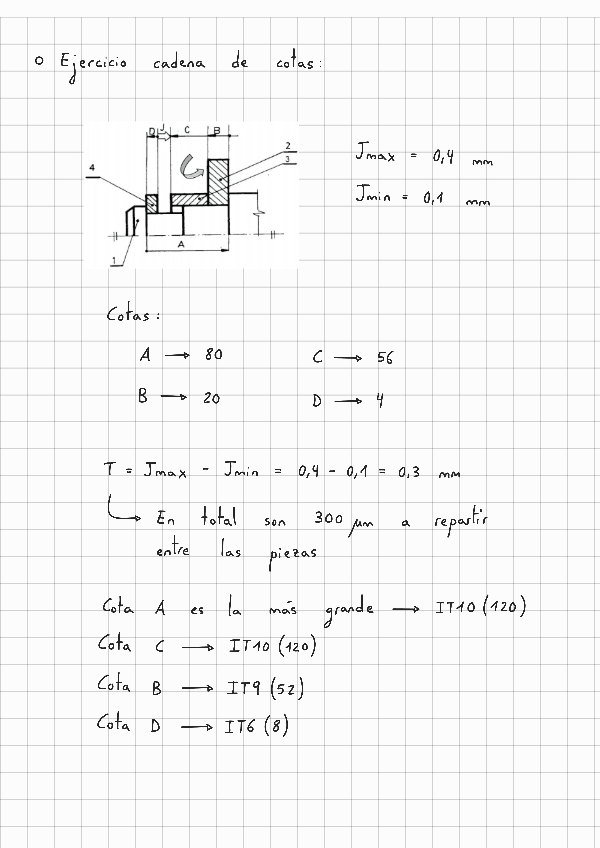 o Ejercicio cadena de cotas:
D J C B
2
3
4
1
A
Jmax = 0,4 mm
Jmin = 0,1 mm
Cotas:
A → 80 C → 56
B → 20 D → 4
T = Jmax - Jmin = 0,4 - 0,1 = 0,3 mm
En total son 300 μm a repartir
entre las piezas
Cota A es la más grande → IT10 (120)
Cota C → IT10 (120)
Cota B → IT9 (52)
Cota D → IT6 (8)